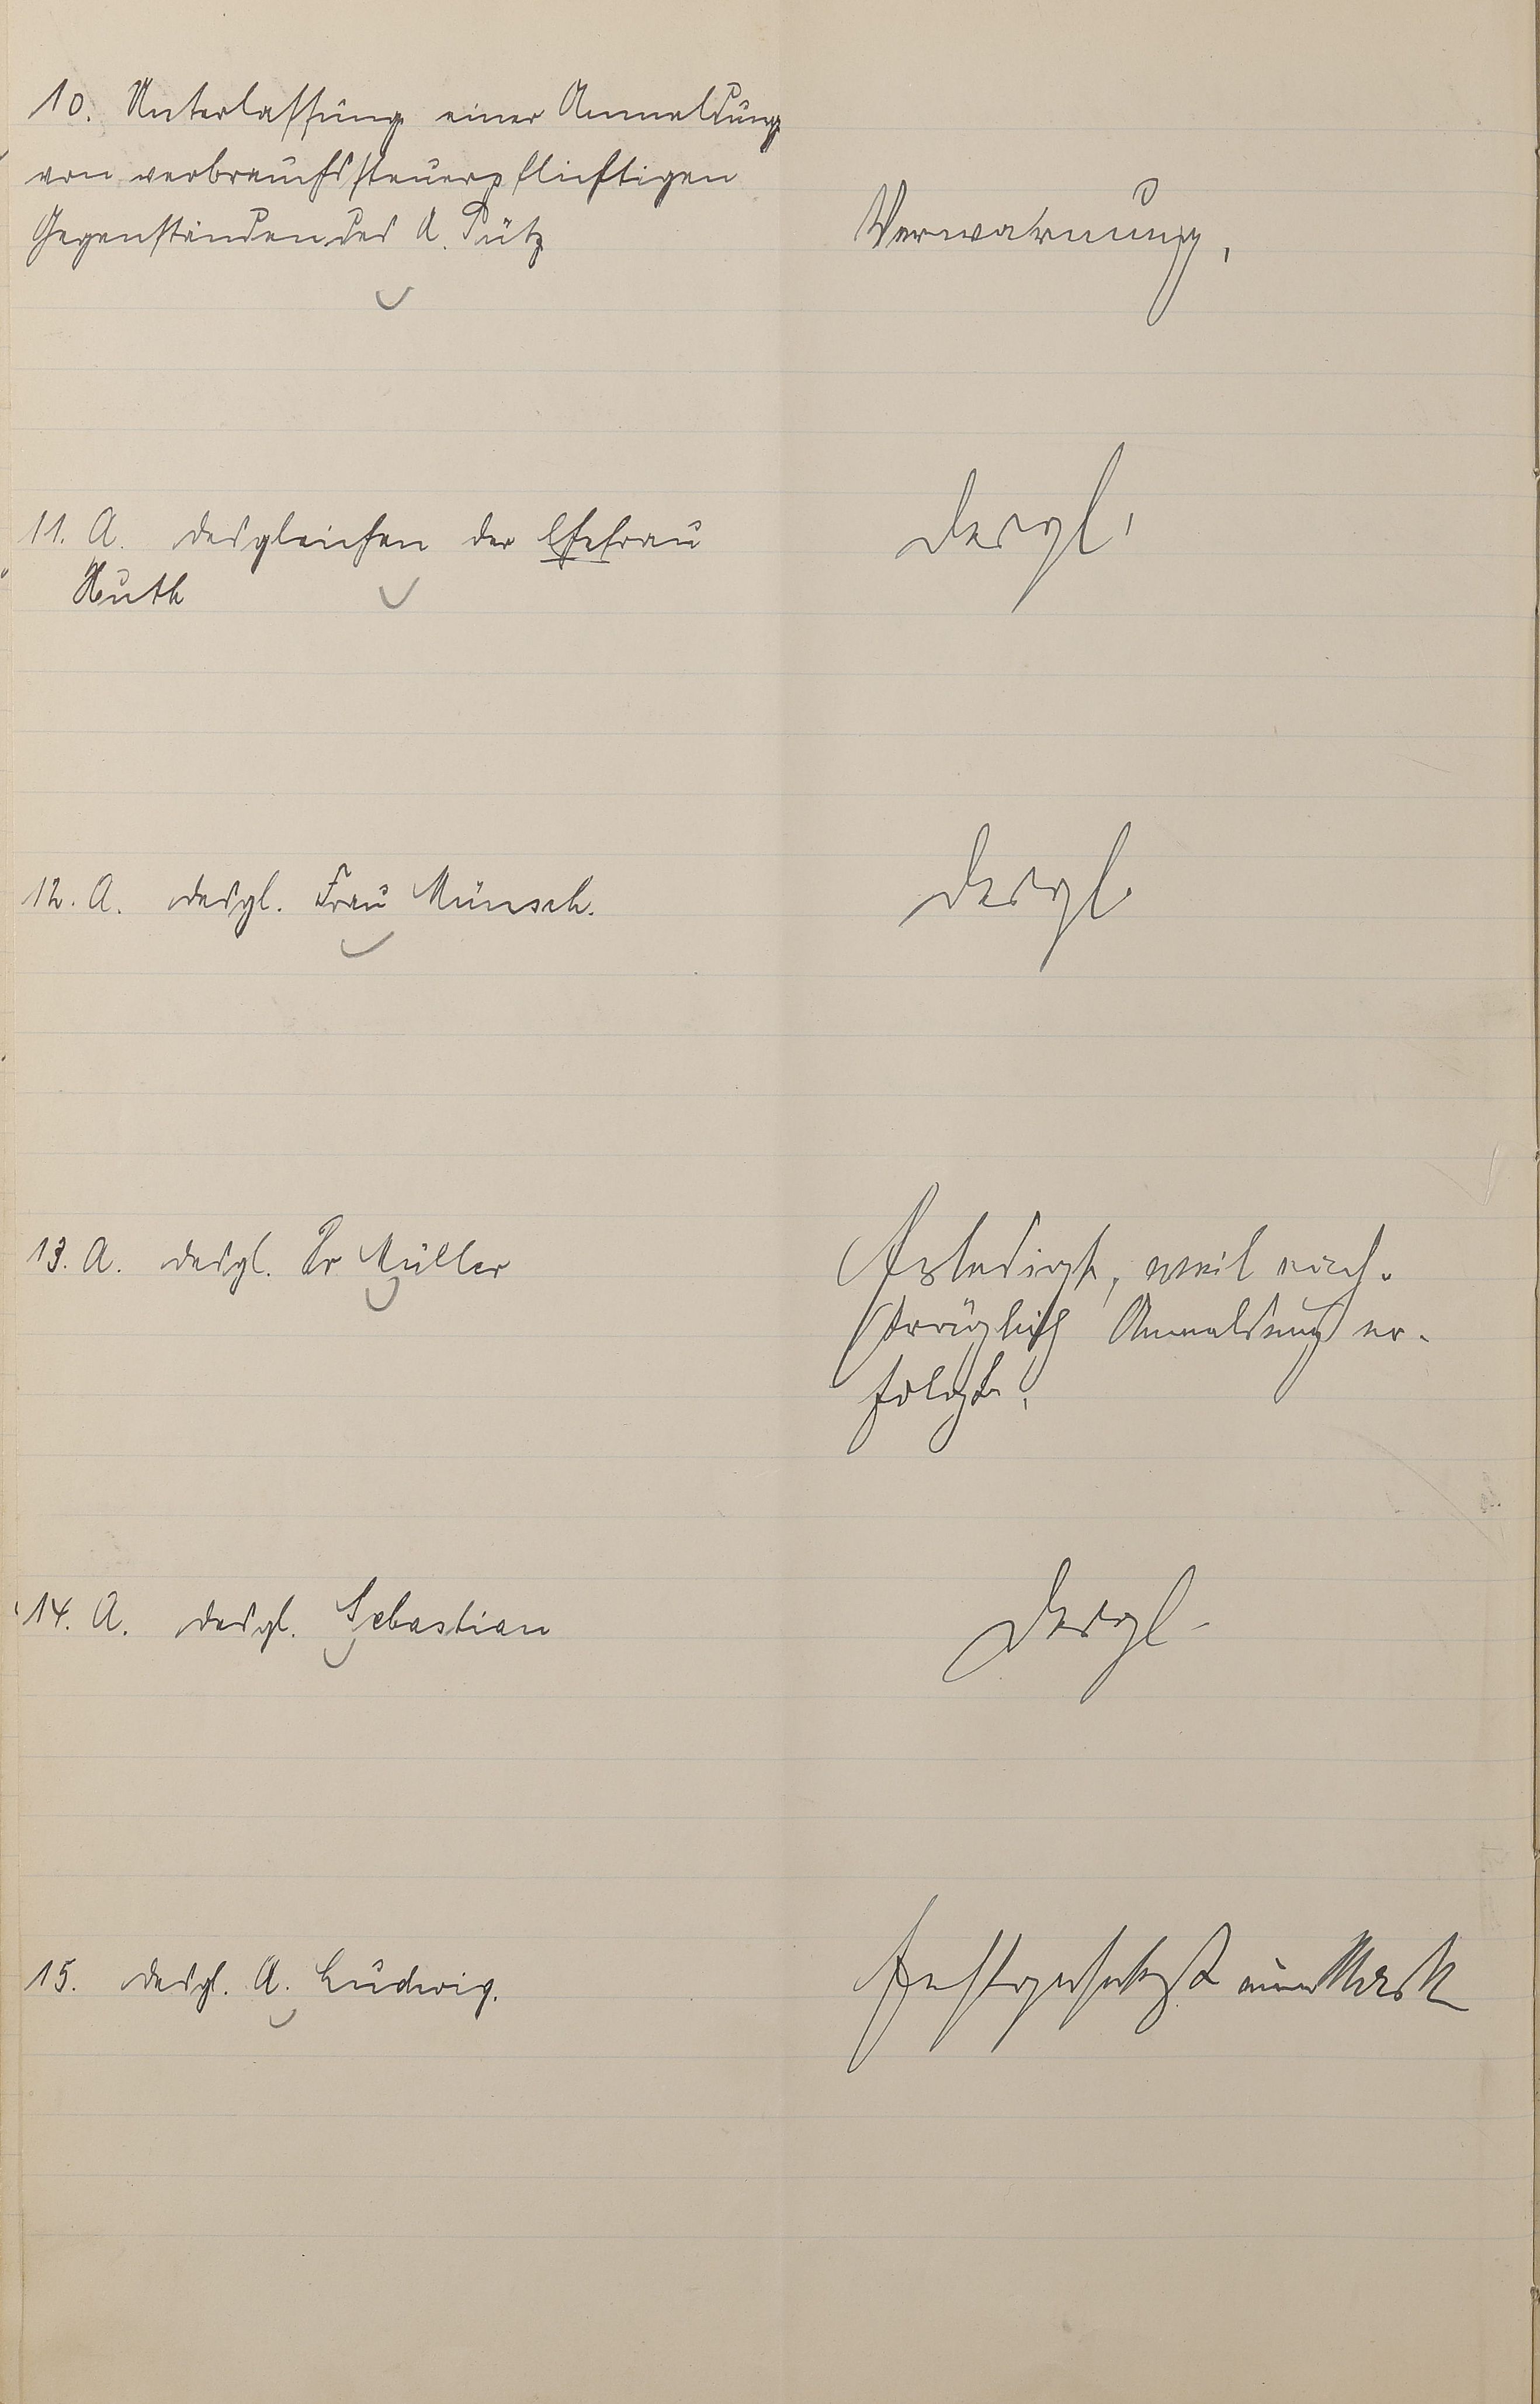 10. Unterlassung einer Anmeldung
von verbrauchssteuerpflichtigen
Gegenständen des A. Pütz
Verwarnung.
11. A. desgleichen der Ehefrau
Huth
desgl.
12. A. desgl. Frau Münsch.
desgl.
13. A. desgl. Dr Müller
Erledigt, weil nach-
träglich Anmeldung er-
folgt.
14. A. desgl. Sebastian
desgl.
15. desgl. A. Ludwig.
Festgesetzt eine Mark